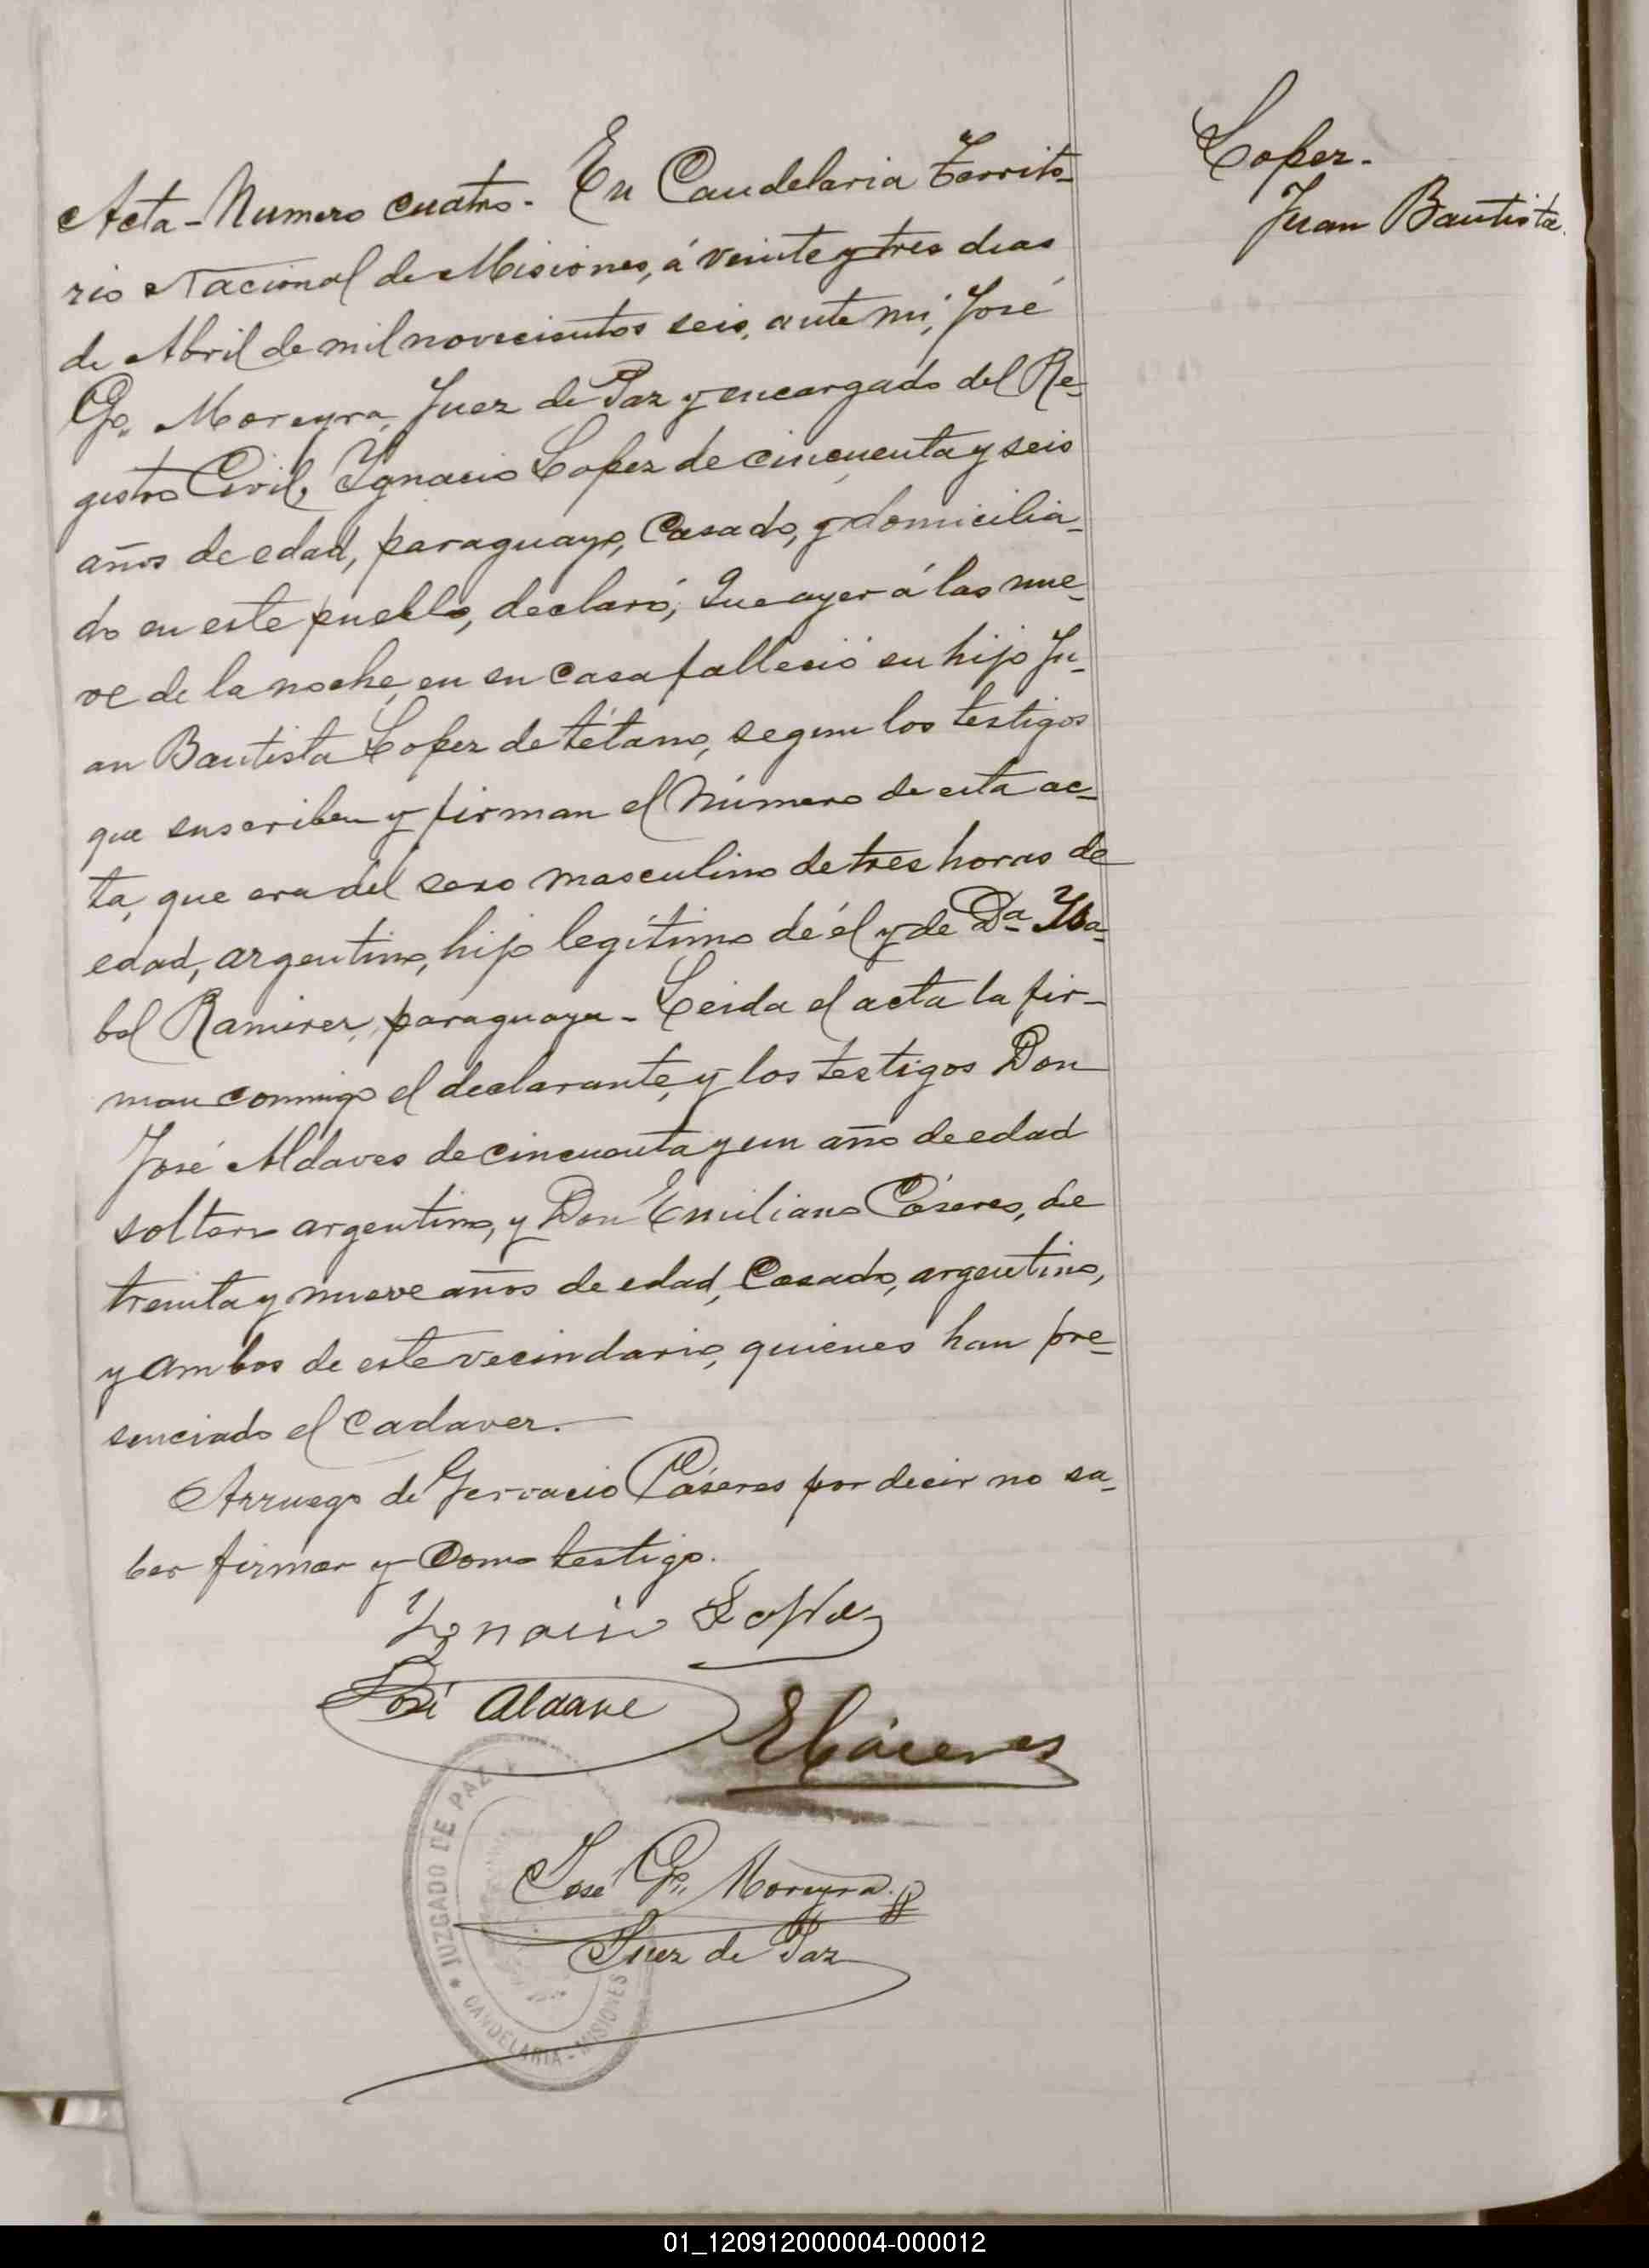 Lopez.
Juan Bautista.
Acta-Numero cuatro. En Candelaria Territo-
rio Nacional de Misiones, á veinte y tres dias
de Abril de mil novecientos seis, ante mi, José
G. Moreyra, Juez de Paz y encargado del Re-
gistro Civil, Ygnacio Lopez de cincuenta y seis
años de edad, paraguayo, Casado, y domicilia-
do en este pueblo, declaró; Que ayer á las nue-
ve de la noche, en su casa falleció su hijo Ju-
an Bautista Lopez de tétano, segun los testigos
que suscriben y firman el número de esta ac-
ta, que era del sexo masculino de tres horas de
edad, argentino, hijo legítimo de él y de Da Ysa-
bel Ramirez, paraguaya. Leida el acta la fir-
man conmigo el declarante, y los testigos Don
José Aldaves de cincuenta y un año de edad
soltero argentino, y Don Emiliano Cáseres, de
treinta y nueve años de edad, Casado, argentino,
y ambos de este vecindario, quienes han pre-
senciado el cadaver.
Arruego de Gervacio Cáseres por decir no sa-
ber firmar y Como testigo.
Ygnacio Lopez
José Aldave
E Cáceres
José G. Moreyra
Juez de Paz
JUZGADO DE PAZ
CANDELARIA - MISIONES
01_120912000004-000012